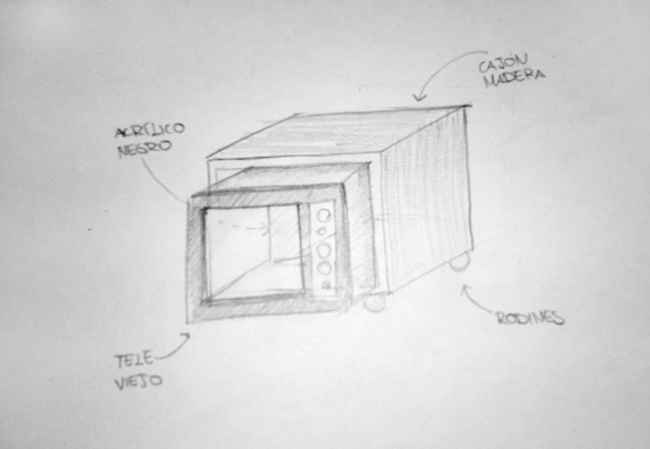 CAJÓN
MADERA
ACRÍLICO
NEGRO
RODINES
TELE
VIEJO